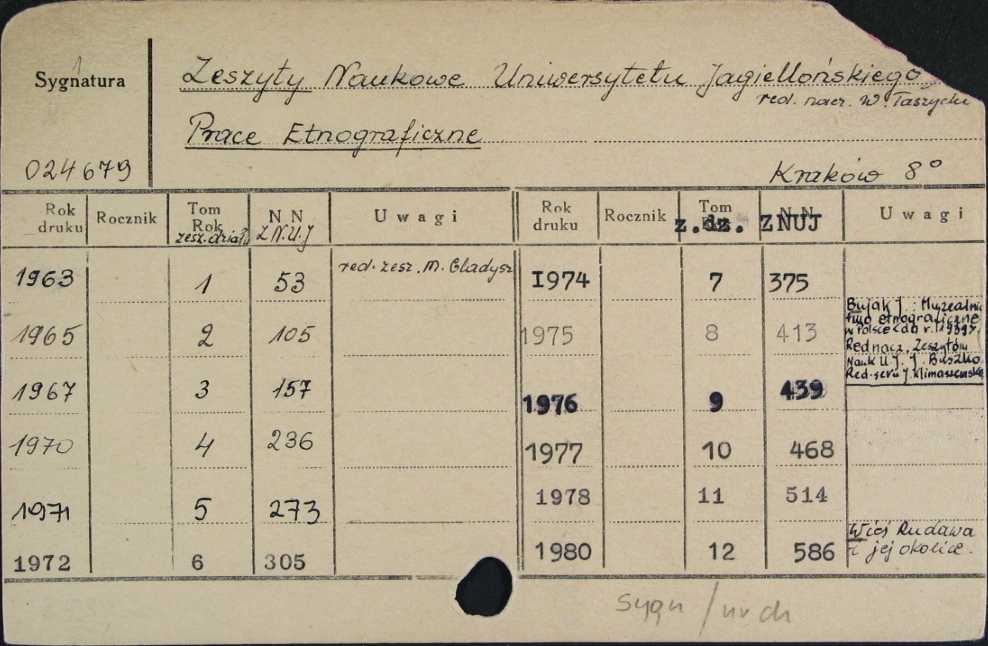 Sygnatura
1
Zeszyty Naukowe Uniwersytetu Jagiellońskiego
red. nacz. W. Taszycki
Prace Etnograficzne
024679
Kraków 8°
Rok druku Rocznik Tom Rok zesz. działu N N Z.N.U.J Uwagi
Rok druku Rocznik Tom z. dz. N N ZNUJ Uwagi
1963 1 53 red. zesz. M. Gladysz
1965 2 105
1967 3 157
1970 4 236
1971 5 273
1972 6 305
I974 7 375
1975 8 413
Bujak J.: Muzealni-
ctwo etnograficzne
w Polsce (do r. 1939).
Red nacz. Zeszytów
Nauk UJ. J. Buszko
Red. serii J. Klimaszewska
1976 9 439
1977 10 468
1978 11 514
1980 12 586 Wieś Rudawa
i jej okolice.
sygn / nr ch